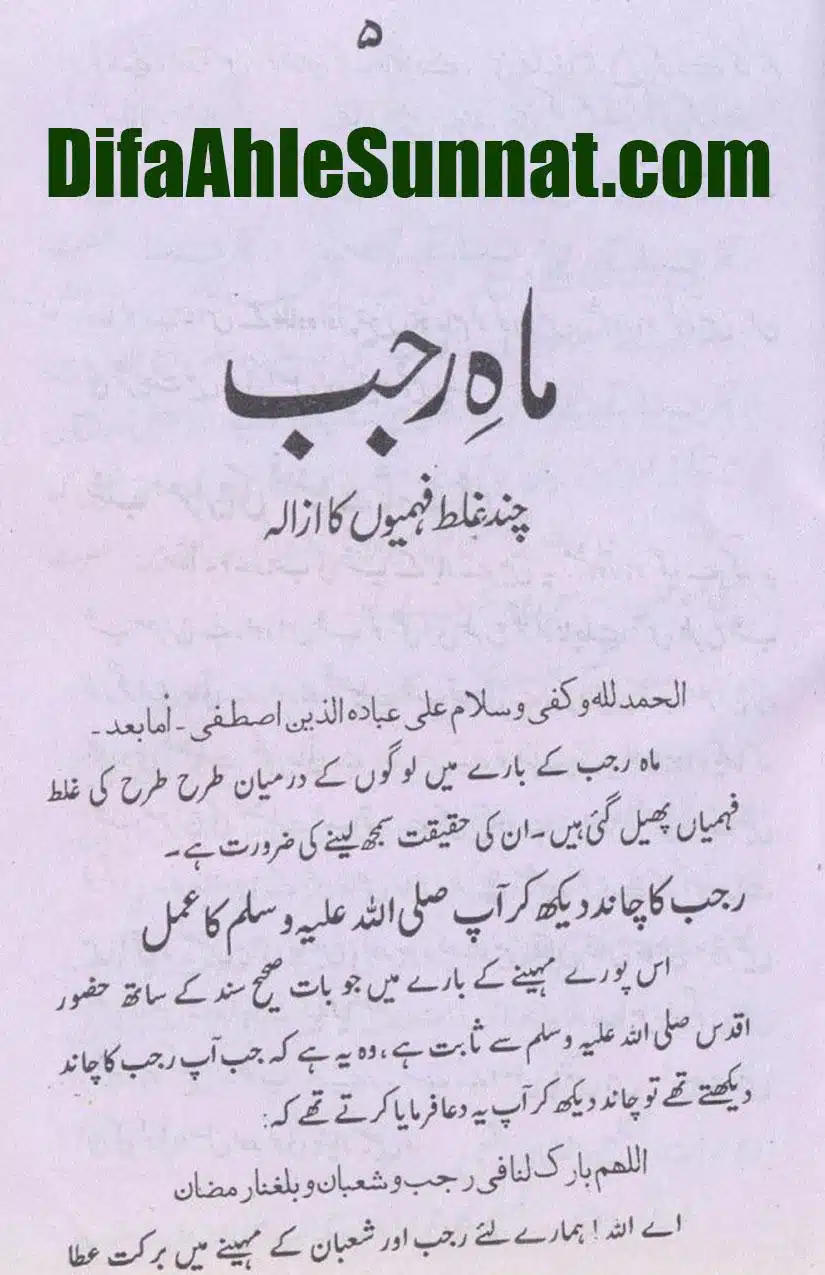 ۵
DifaAhleSunnat.com
ماہِ رجب
چند غلط فہمیوں کا ازالہ
الحمدلله وكفى وسلام على عباده الذين اصطفى ۔ امابعد ۔
ماہ رجب کے بارے میں لوگوں کے درمیان طرح طرح کی غلط
فہمیاں پھیل گئی ہیں ۔ ان کی حقیقت سمجھ لینے کی ضرورت ہے ۔
رجب کا چاند دیکھ کر آپ صلی اللہ علیہ وسلم کا عمل
اس پورے مہینے کے بارے میں جو بات صحیح سند کے ساتھ حضور
اقدس صلی اللہ علیہ وسلم سے ثابت ہے، وہ یہ ہے کہ جب آپ رجب کا چاند
دیکھتے تھے تو چاند دیکھ کر آپ یہ دعا فرمایا کرتے تھے کہ:
اللهم بارك لنا في رجب و شعبان و بلغنا رمضان
اے اللہ! ہمارے لئے رجب اور شعبان کے مہینے میں برکت عطا